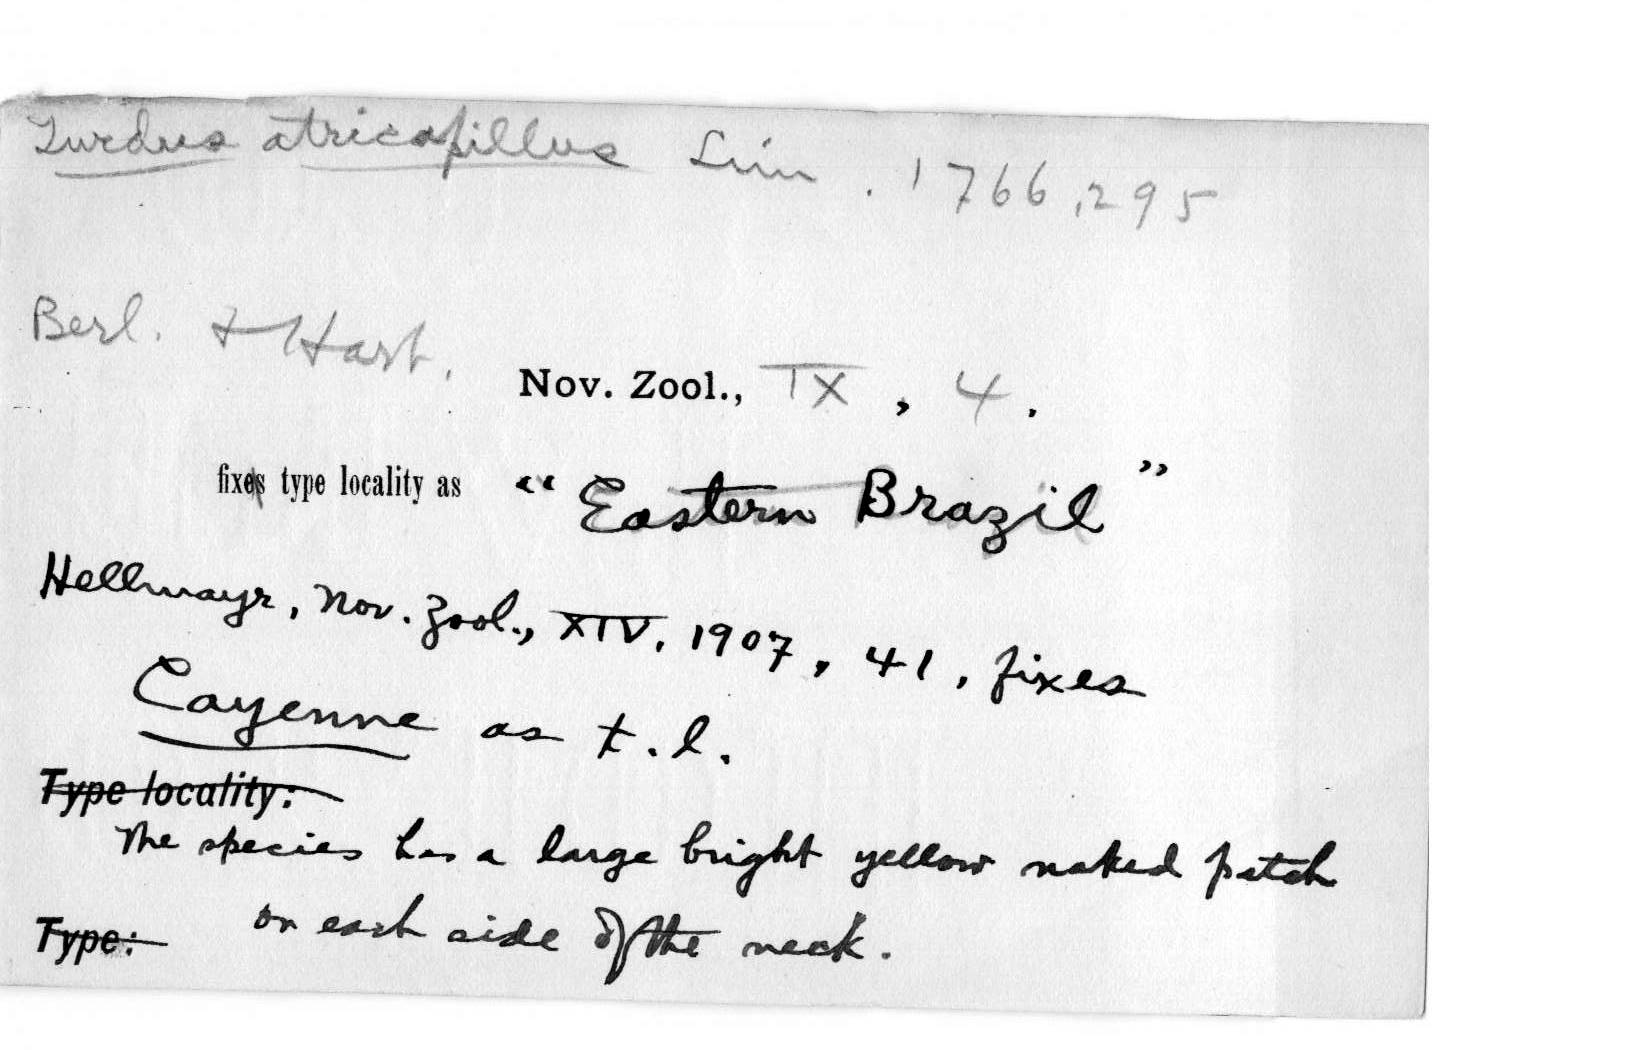 Turdus atricapillus Linn. 1766, 295
Berl. & Hart.
Nov. Zool., IX, 4.
fixes type locality as "Eastern Brazil"
Hellmayr, Nov. Zool., XIV, 1907, 41, fixes
Cayenne as t.l.
Type locality:
The species has a large bright yellow naked patch
on each side of the neck.
Type: